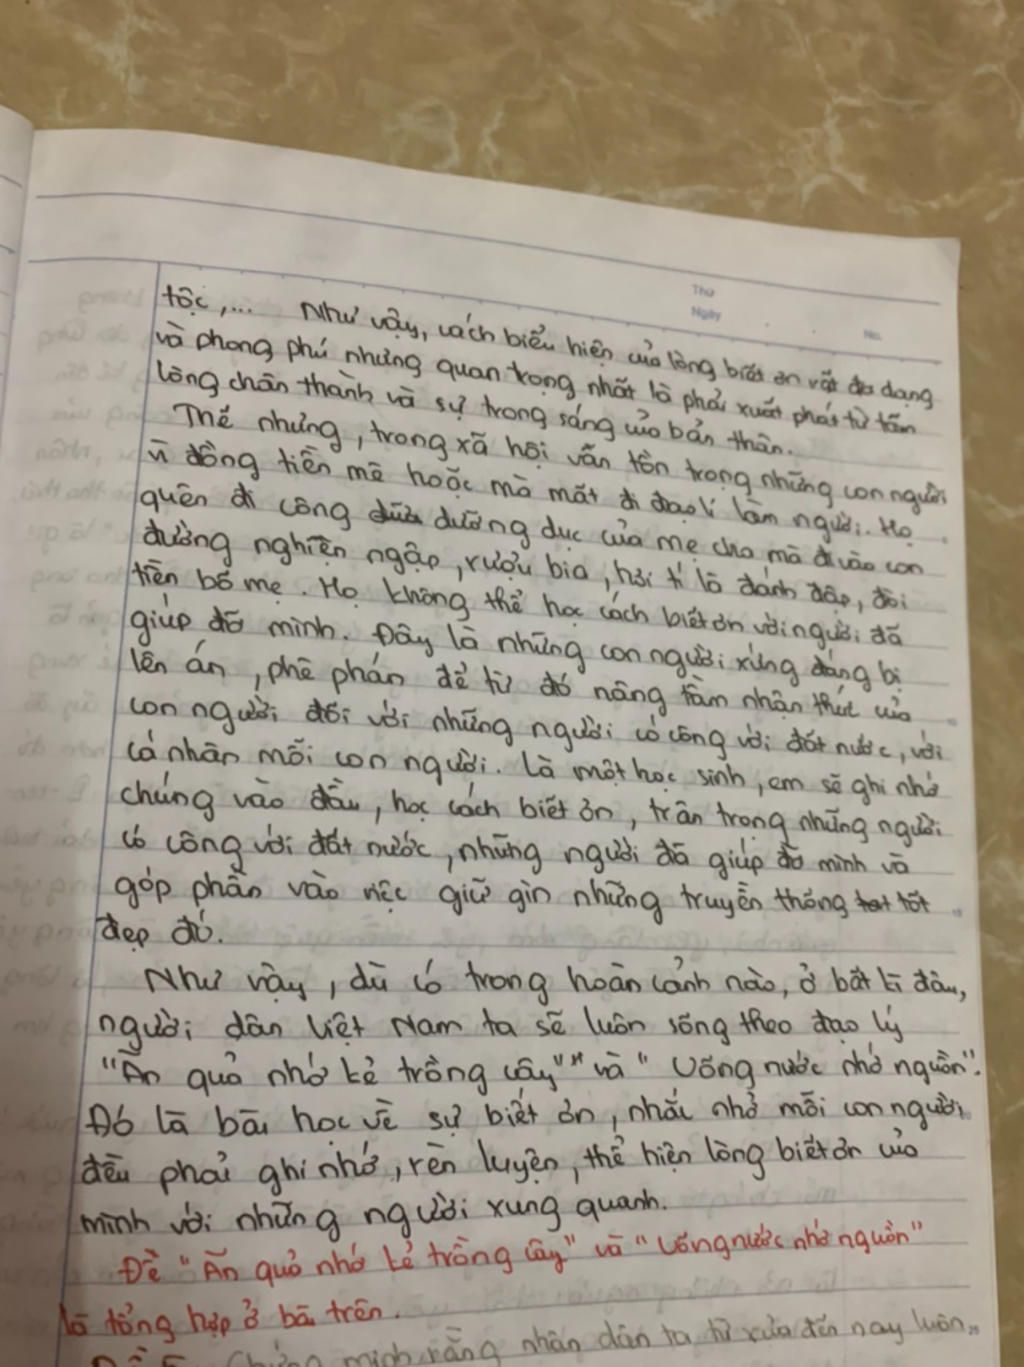 Thứ
Ngày
No.
tộc,... Như vậy, cách biểu hiện của lòng biết ơn rất đa dạng
và phong phú nhưng quan trọng nhất là phải xuất phát từ tấm
lòng chân thành và sự trong sáng của bản thân.
Thế nhưng, trong xã hội vẫn tồn trong những con người
vì đồng tiền mê hoặc mà mất đi đạo lí làm người. Họ
quên đi công dưỡng dục của mẹ cha mà đi vào con
đường nghiện ngập, rượu bia, hơi tí là đánh đập, đòi
tiền bố mẹ. Họ không thể học cách biết ơn với người đã
giúp đỡ mình. Đây là những con người xứng đáng bị
lên án, phê phán để từ đó nâng tầm nhận thức của
con người đối với những người có công với đất nước, với
cá nhân mỗi con người. Là một học sinh, em sẽ ghi nhớ
chúng vào đầu, học cách biết ơn, trân trọng những người
có công với đất nước, những người đã giúp đỡ mình và
góp phần vào việc giữ gìn những truyền thống tốt
đẹp đó.
Như vậy, dù có trong hoàn cảnh nào, ở bất kì đâu,
người dân Việt Nam ta sẽ luôn sống theo đạo lý
"Ăn quả nhớ kẻ trồng cây"" và "Uống nước nhớ nguồn".
Đó là bài học về sự biết ơn, nhắc nhở mỗi con người
đều phải ghi nhớ, rèn luyện, thể hiện lòng biết ơn của
mình với những người xung quanh.
Đề "Ăn quả nhớ kẻ trồng cây" và "Uống nước nhớ nguồn"
là tổng hợp ở bài trên.
Chứng minh rằng nhân dân ta từ xưa đến nay luôn